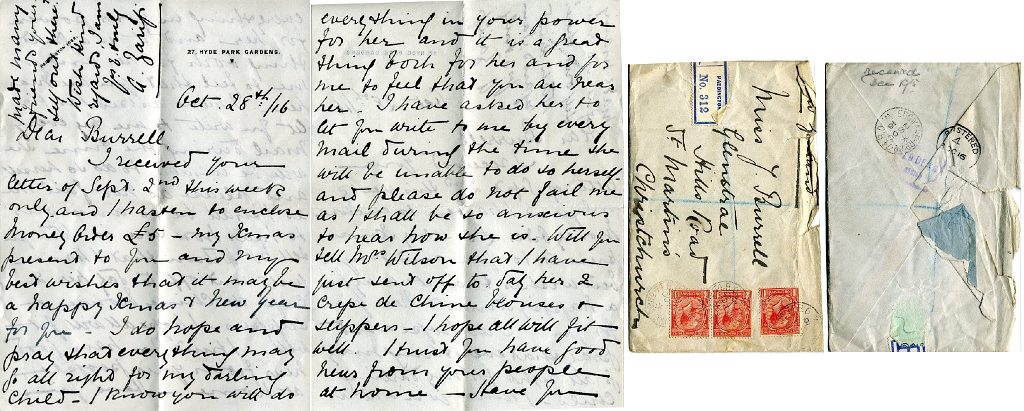 27, HYDE PARK GARDENS.
Oct 28th/16
Dear Burrell,
I received your
letter of Sept. 2nd this week
only and I hasten to enclose
Money Order £5 - my Xmas
present to you and my
best wishes that it may be
a happy Xmas & New Year
for you - I do hope and
pray that everything may
go all right for my darling
child - I know you will do
everything in your power
for her and it is a great
thing both for her and for
me to feel that you are near
her. I have asked her to
let you write to me by every
mail during the time she
will be unable to do so herself
and please do not fail me
as I shall be so anxious
to hear how she is. Will you
tell Mrs Wilson that I have
just sent off to day her 2
Crepe de Chine blouses &
slippers - I hope all will fit
well. I trust you have good
news from your people
at home - Have you
made many
friends yourself out there?
With kind
regards, I am
yrs truly
PADDINGTON
No. 312
Miss Burrell
Glenstrae
Hills Road
St Martins
Christchurch
received
Dec 19